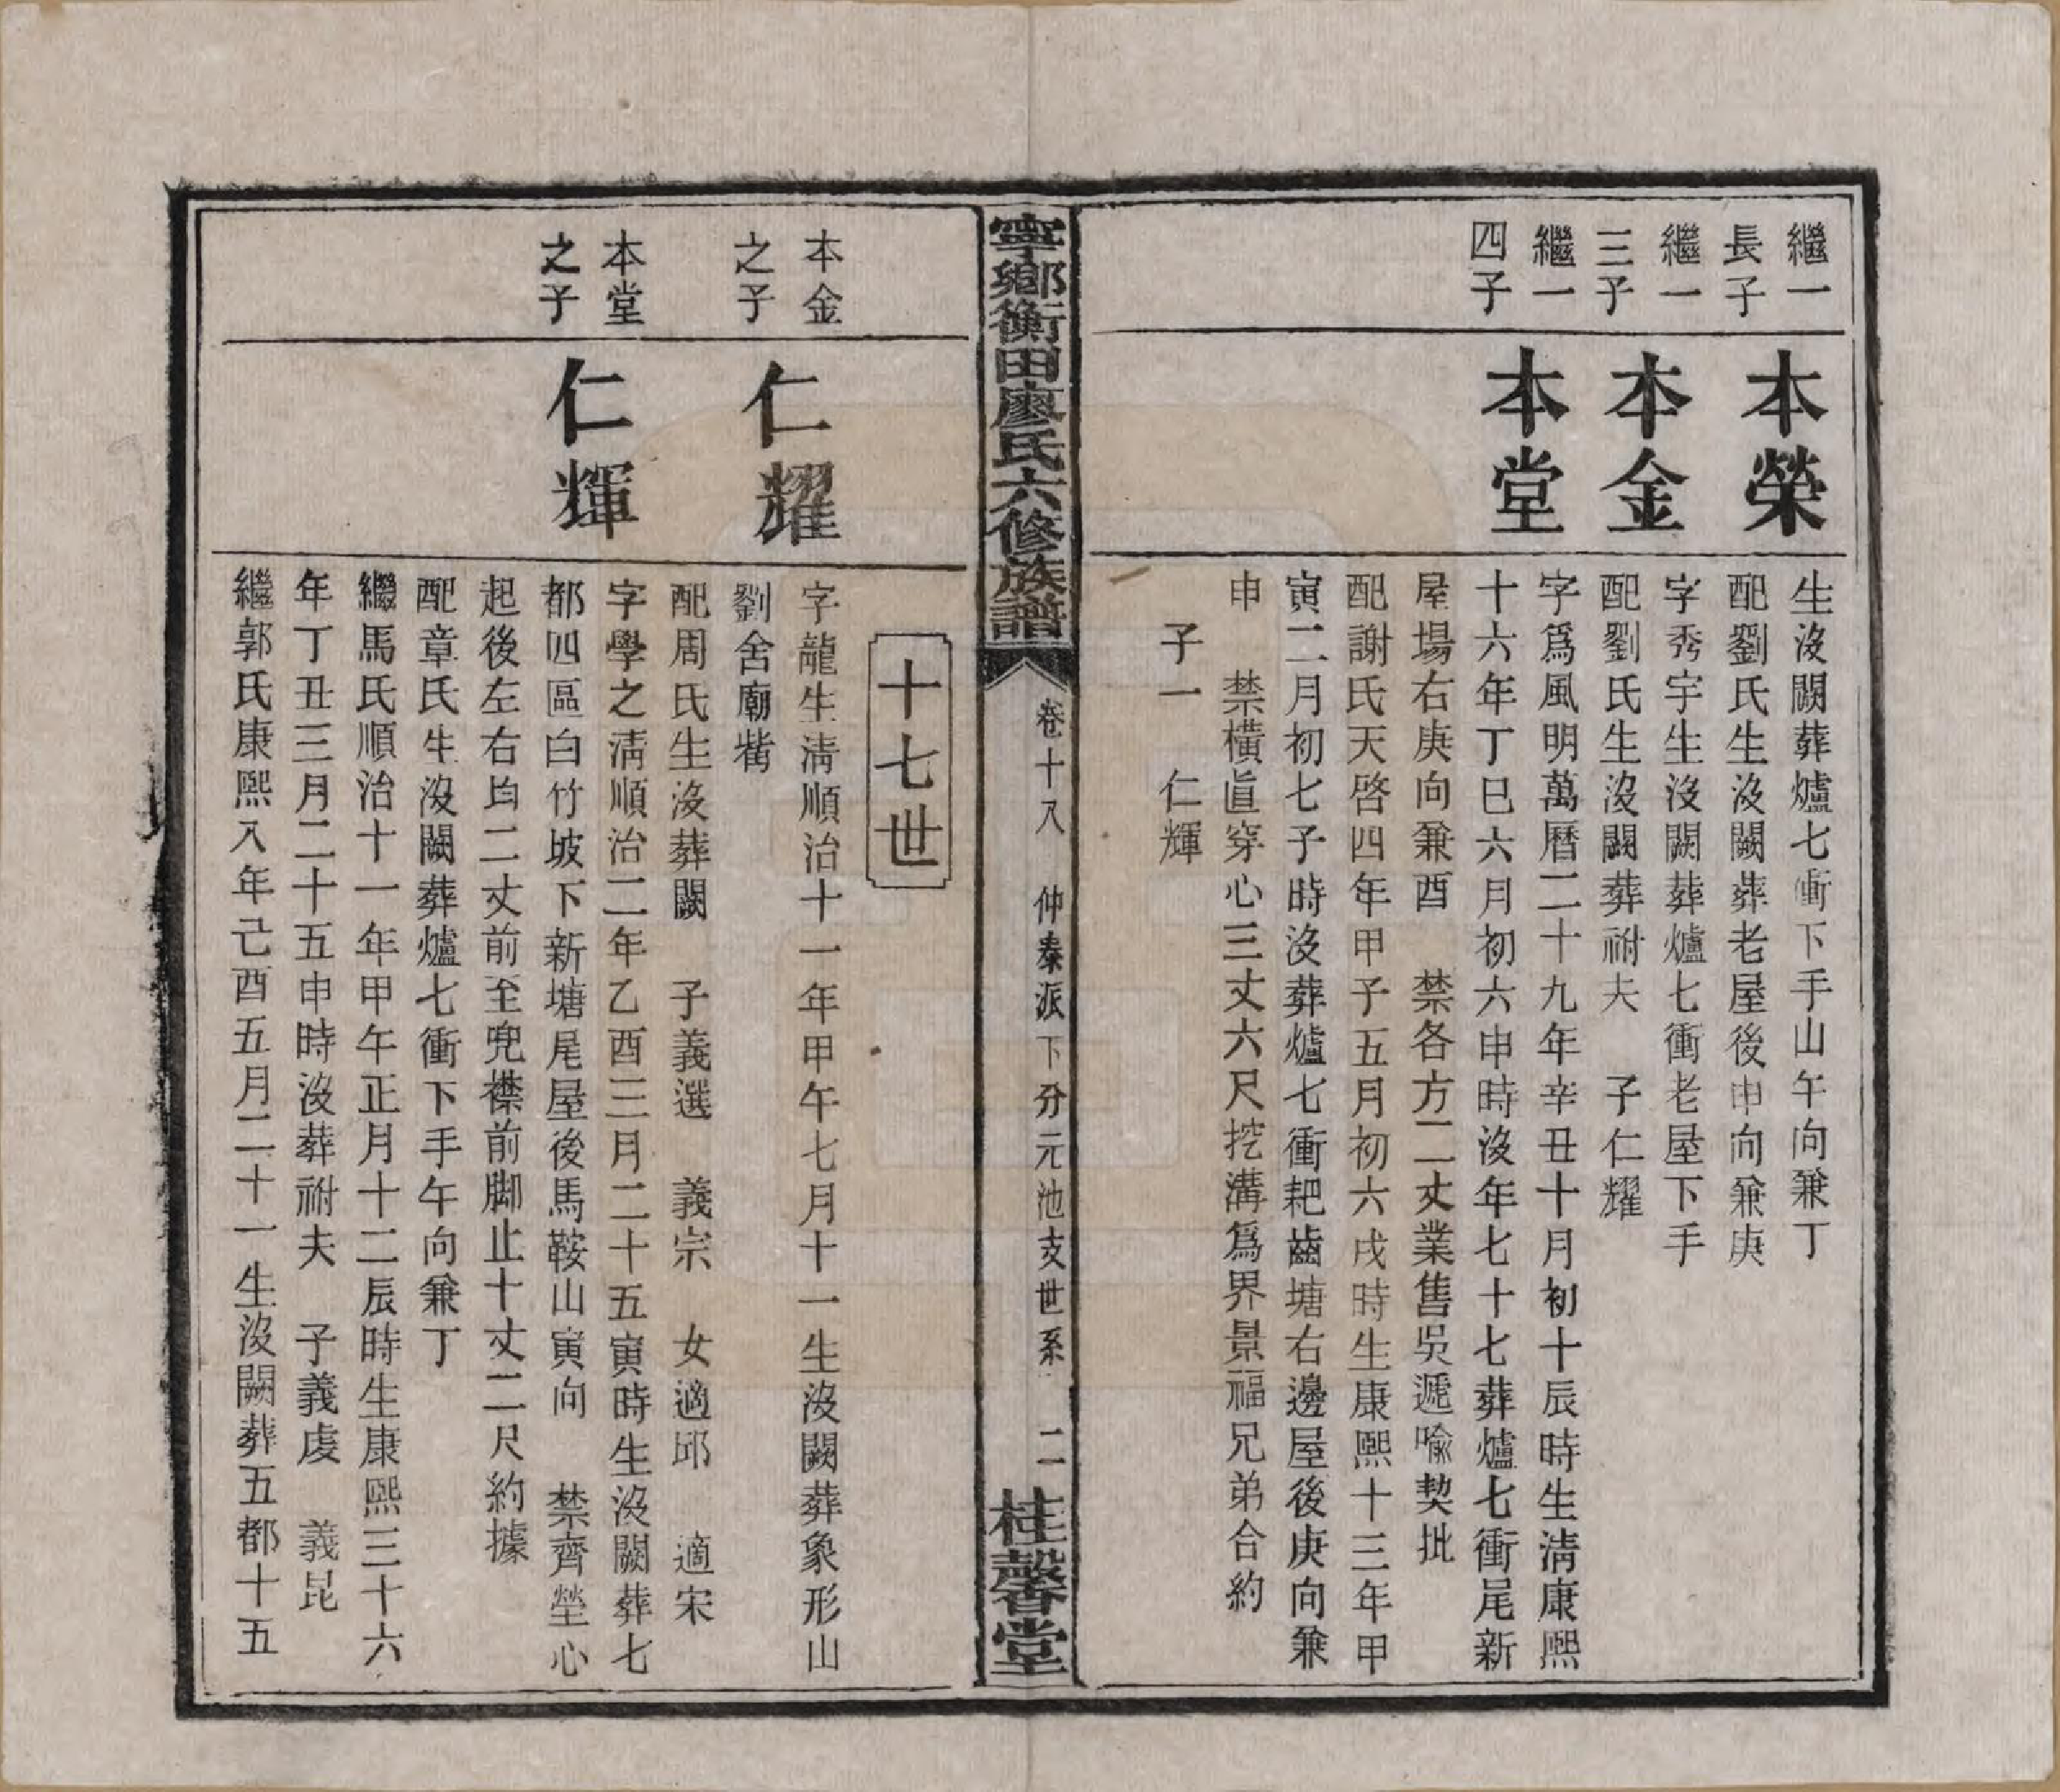 繼一
長子
本榮
生沒闕葬爐七衝下手山午向兼丁
配劉氏生沒闕葬老屋後申向兼庚
繼一
三子
本金
字秀宇生沒闕葬爐七衝老屋下手
配劉氏生沒闕葬祔夫　子仁耀
繼一
四子
本堂
字爲風明萬曆二十九年辛丑十月初十辰時生清康熙
十六年丁巳六月初六申時沒年七十七葬爐七衝尾新
屋場右庚向兼酉　禁各方二丈業售吳遞喻契批
配謝氏天啓四年甲子五月初六戌時生康熙十三年甲
寅二月初七子時沒葬爐七衝耙齒塘右邊屋後庚向兼
申　禁橫直穿心三丈六尺挖溝爲界景福兄弟合約
子一　仁輝
寧鄉衡田廖氏六修族譜
卷十八　仲泰派下分元池支世系　二
桂馨堂
十七世
本金
之子
仁耀
字龍生清順治十一年甲午七月十一生沒闕葬象形山
劉舍廟觜
配周氏生沒葬闕　子義選　義宗　女適邱　適宋
本堂
之子
仁輝
字學之清順治二年乙酉三月二十五寅時生沒闕葬七
都四區白竹坡下新塘尾屋後馬鞍山寅向　禁齊塋心
起後左右均二丈前至兜襟前脚止十丈二尺約據
配章氏生沒闕葬爐七衝下手午向兼丁
繼馬氏順治十一年甲午正月十二辰時生康熙三十六
年丁丑三月二十五申時沒葬祔夫　子義虔　義昆
繼郭氏康熙八年己酉五月二十一生沒闕葬五都十五